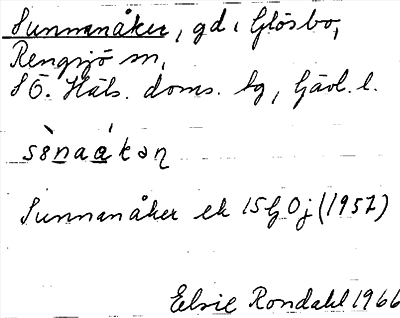 Sunnanåker, gd i Glösbo,
Rengsjö sn,
S Ö. Häls. doms. lg, Gävl. l.
sènaákaɳ
Sunnanåker ek 15G Oj (1957)
Elsie Rondahl 1966